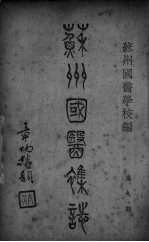 蘇州國醫學校編
第九期
蘇州國醫雜誌
章炳麟題